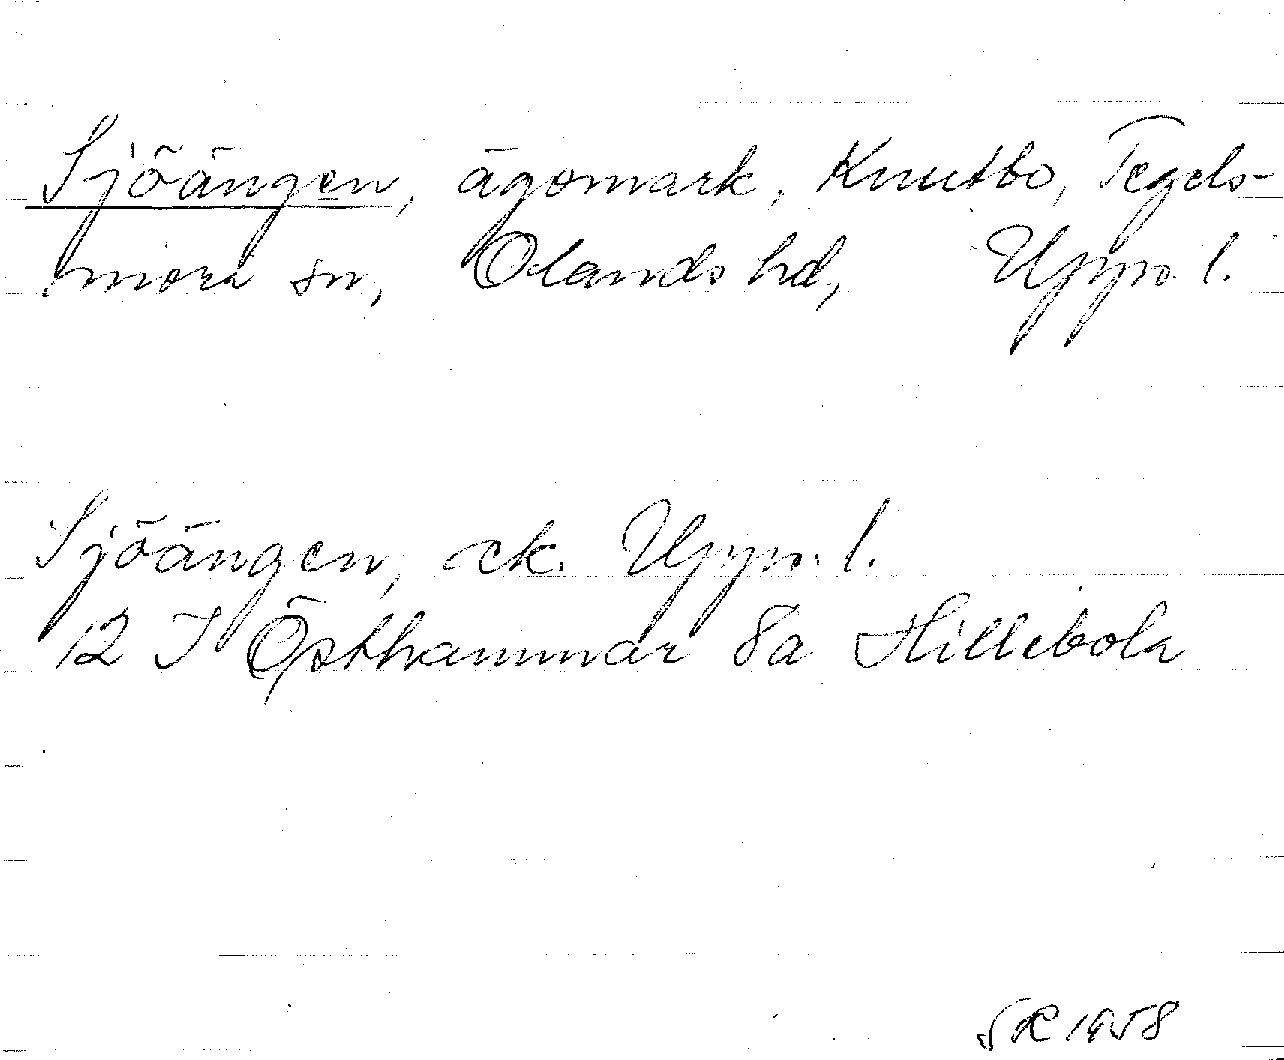 Sjöängen, ägomark, Knutbo, Tegels-
mora sn, Olands hd, Upps. l.
Sjöängen, ek. Upps. l.
12 I Östhammar 8a Hillebola
SR 1958